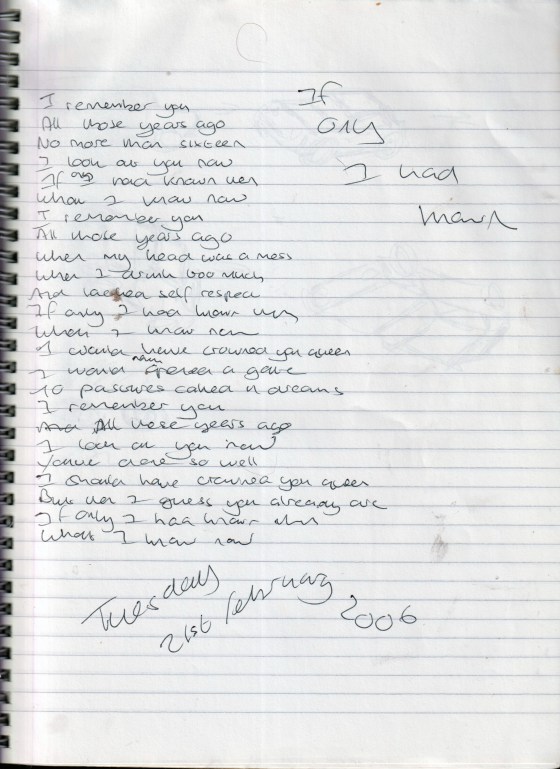 If
only
I had
known
I remember you
All those years ago
No more than sixteen
I look at you now
If only I had known then
What I know now
I remember you
All those years ago
When my head was a mess
When I drunk too much
And lacked self respect
If only I had known then
What I know now
I would have crowned you queen
I would have opened a gate
To pastures called dreams
I remember you
And All those years ago
I look at you now
You've done so well
I should have crowned you queen
But then I guess you already are
If only I had known then
What I know now
Tuesday
21st February
2006